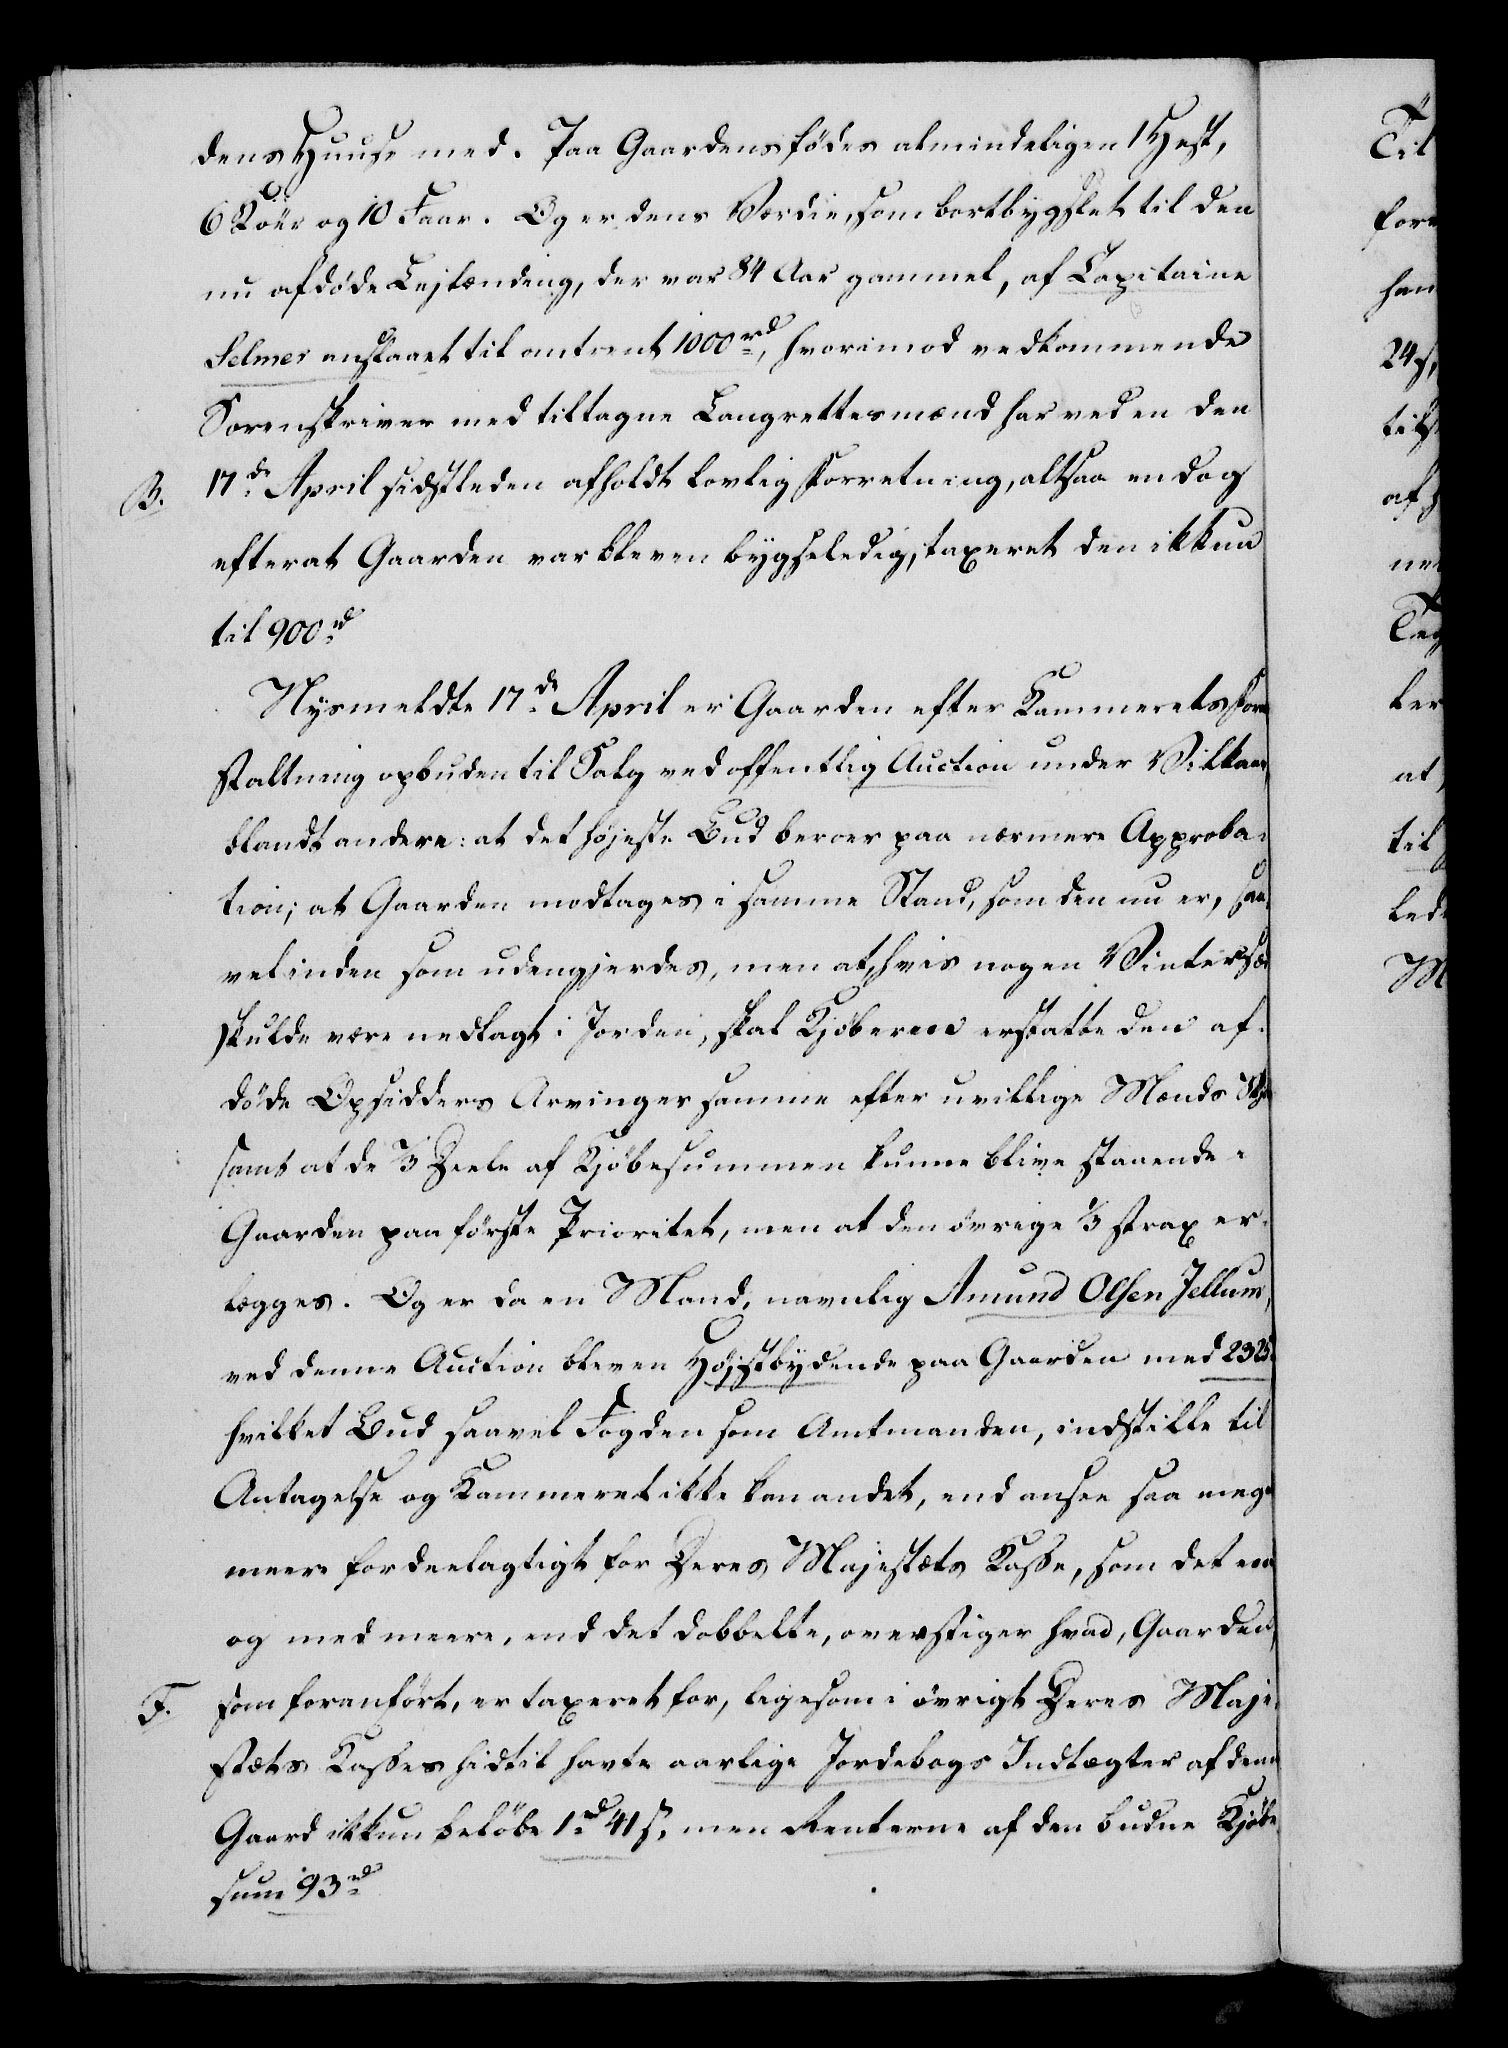 dens Huuse med. Paa Gaardens fødes almindeligen 1 Hest,
6 Køer og 10 Faar. Og er dens Værdie, som bortbygslet til den
nu afdøde Lejlænding, der var 84 Aar gammel, af Capitaine
Selmer anslaaet til omtrent 1000 rd, hvorimod vedkommende
Sorenskriver med tiltagne Laugrettesmænd har ved en den
B. 17de April sidstleden afholdt lovlig Forretning, altsaa endog
efterat Gaarden var bleven bygselledig, taxeret den ikkun
til 900 rd
Nysmeldte 17de April er Gaarden efter Kammerets For-
staltning opbuden til Salg ved offentlig Auction under Vilkaar,
blandt andere: at det højeste Bud beroer paa nærmere Approba-
tion; at Gaarden modtages i samme Stand, som den nu er, saa-
vel inden som udengjerdes, men at, hvis nogen Vintersæd
skulde være nedlagt i Jorden, skal Kjøberen erstatte den af-
døde Opsidders Arvinger samme efter uvillige Mænds Skjøn
samt at de 2/3 Deele af Kjøbesummen kunne blive staaende i
Gaarden paa første Prioritet, men at den øvrige 1/3 strax er-
lægges. Og er da en Mand, navnlig Amund Olsen Jellum,
ved denne Auction bleven Højstbydende paa Gaarden med 2325
hvilket Bud saavel Fogden som Amtmanden, indstille til
Antagelse og Kammeret ikke kan andet, end ansee saa meget
meere fordeelagtigt for Deres Majestæts Kasse, som det end
og med meere, end det dobbelte, overstiger hvad, Gaarden,
F. som foranført, er taxeret for, ligesom i øvrigt Deres Maje-
stæts Kasses hidtil havte aarlige Jordebogs Indtægter af denne
Gaard ikkun beløbe 1 rd 41 s, men Renterne af den budne Kjøbe-
sum 93 rd
Til
for
han
24 s,
af
ler
at
til
M